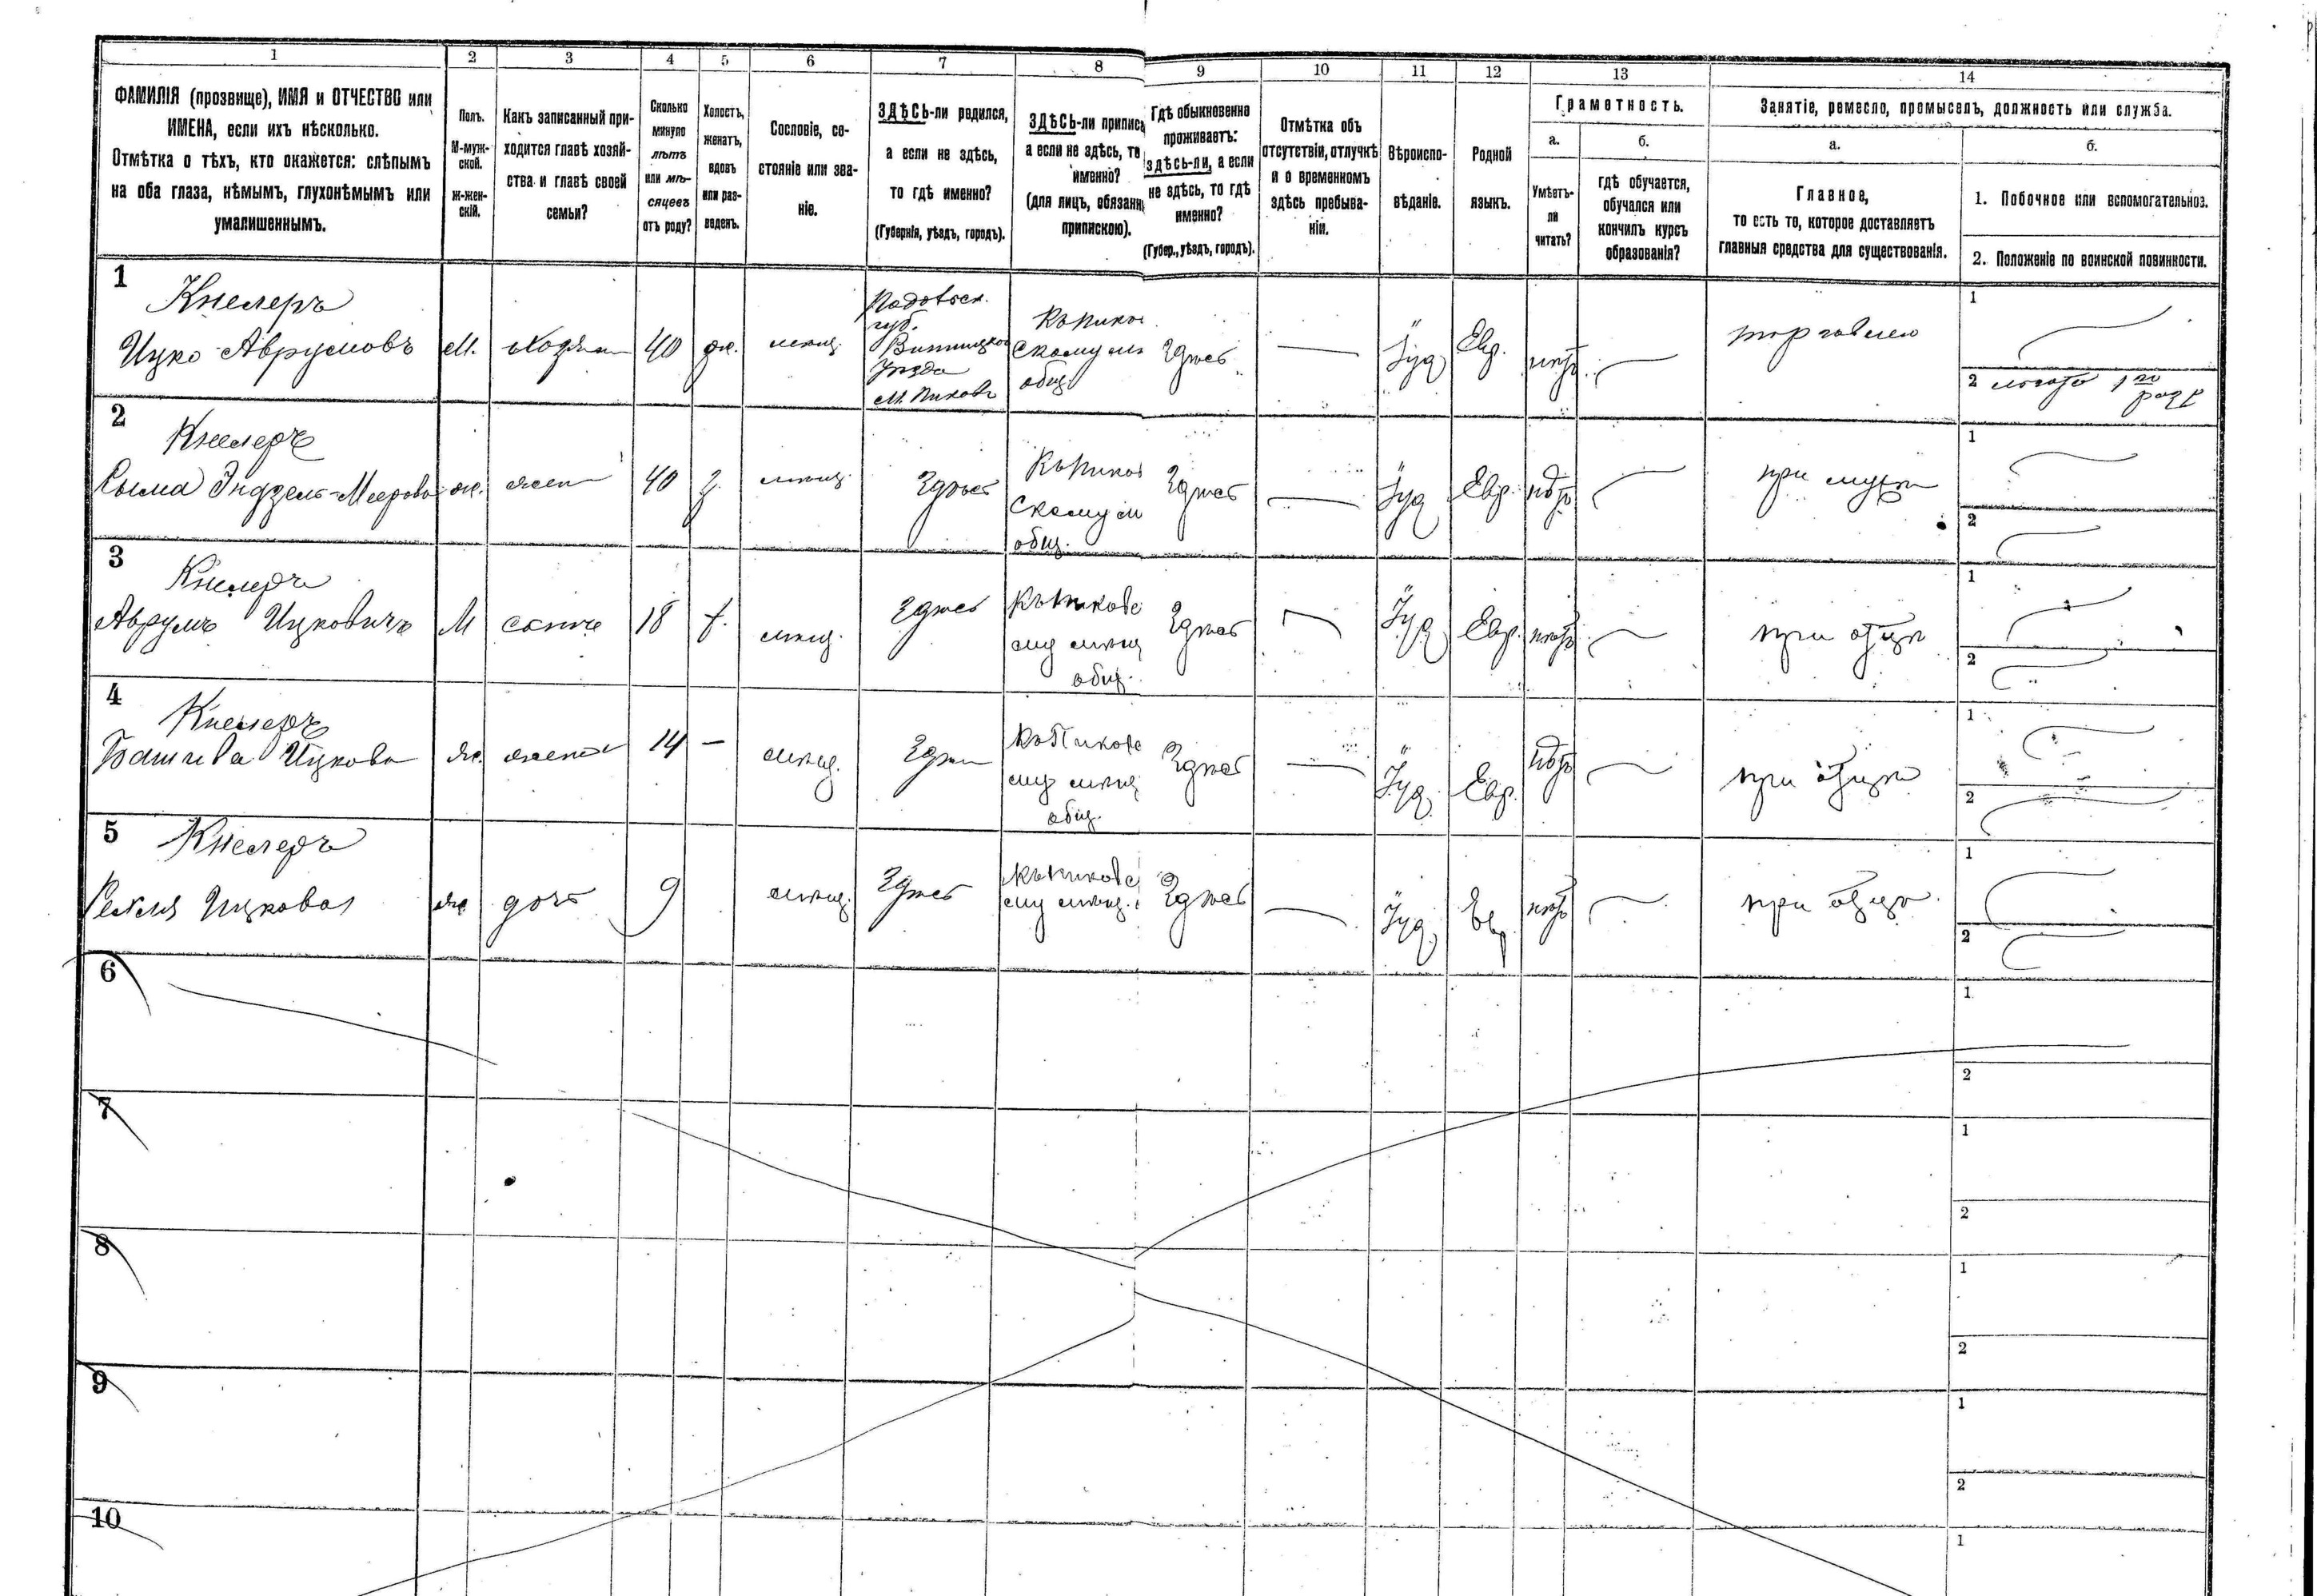 1 2 3 4 5 6 7 8 9 10 11 12 13 14
ФАМИЛІЯ (прозвище), ИМЯ и ОТЧЕСТВО или
ИМЕНА, если ихъ нѣсколько.
Отмѣтка о тѣхъ, кто окажется: слѣпымъ
на оба глаза, нѣмымъ, глухонѣмымъ или
умалишеннымъ.
Полъ.
М-муж-
ской.
Ж-жен-
скій.
Какъ записанный при-
ходится главѣ хозяй-
ства и главѣ своей
семьи?
Сколько
минуло
лѣтъ
или мѣ-
сяцевъ
отъ роду?
Холостъ,
женатъ,
вдовъ
или раз-
веденъ.
Сословіе, со-
стояніе или зва-
ніе.
ЗДѢСЬ-ли родился,
а если не здѣсь,
то гдѣ именно?
(Губернія, уѣздъ, городъ).
ЗДѢСЬ-ли приписа
а если не здѣсь, то
именно?
(для лицъ, обязанн
припискою).
Гдѣ обыкновенно
проживаетъ:
здѣсь-ли, а если
не здѣсь, то гдѣ
именно?
(Губер., уѣздъ, городъ).
Отмѣтка объ
отсутствіи, отлучкѣ
и о временномъ
здѣсь пребыва-
ніи.
Вѣроиспо-
вѣданіе.
Родной
языкъ.
Грамотность.
а.
Умѣетъ-
ли
читать?
б.
гдѣ обучается,
обучался или
кончилъ курсъ
образованія?
Занятіе, ремесло, промыселъ, должность или служба.
а.
Главное,
то есть то, которое доставляетъ
главныя средства для существованія.
б.
1. Побочное или вспомогательное.
2. Положеніе по воинской повинности.
1
Кнелеръ
Ицко Аврумовъ
М.
40
ж.
мѣщ.
губ.
Уѣзда
м. Пиковъ
общ
Здѣсь
Іуд
Евр.
нѣтъ
торговлею
1
2
2
Кнелеръ
Сыма
ж.
жена
40
з.
мѣщ.
Здѣсь
общ.
Здѣсь
Іуд
Евр.
нѣтъ
при мужѣ
1
2
3
Кнелеръ
Аврумъ Ицковичъ
М
сынъ
18
х.
мѣщ.
Здѣсь
общ.
Здѣсь
Іуд
Евр.
нѣтъ
при отцѣ
1
2
4
Кнелеръ
Башива Ицкова
ж.
14
—
мѣщ.
общ.
Здѣсь
Іуд.
Евр.
нѣтъ
при отцѣ
1
2
5
Кнелеръ
Ицкова
ж
дочь
9
мѣщ.
Здѣсь
Здѣсь
Іуд.
Евр
нѣтъ
при отцѣ.
1
2
6
1
2
7
1
2
8
1
2
9
1
2
10
1